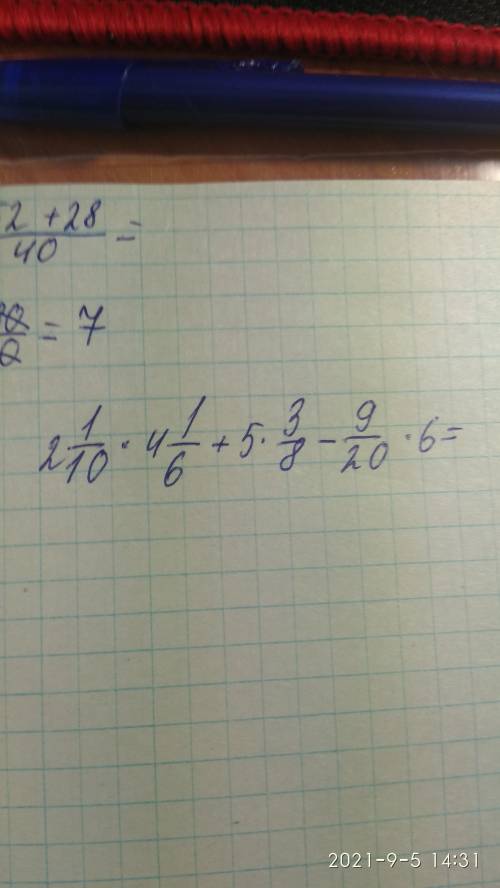 2 + 28 / 40 =
= 7
2 1/10 · 4 1/6 + 5 · 3/8 - 9/20 · 6 =
2021-9-5 14:31